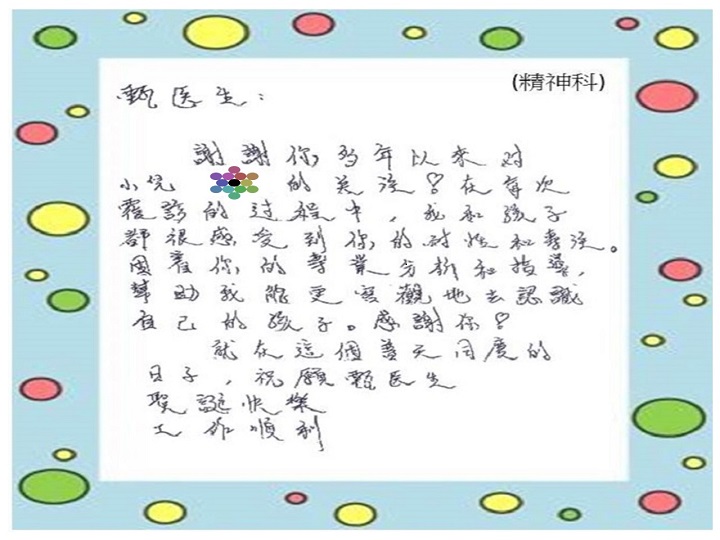 (精神科)
甄医生：
謝謝你多年以来对
小兒 的关注！在每次
覆診的过程中，我和孩子
都很感受到你的耐性和專注。
因着你的專業分析和指導，
幫助我能更客觀地去認識
自己的孩子。感謝你！
就在這個普天同慶的
日子，祝願甄医生
聖誕快樂
工作順利